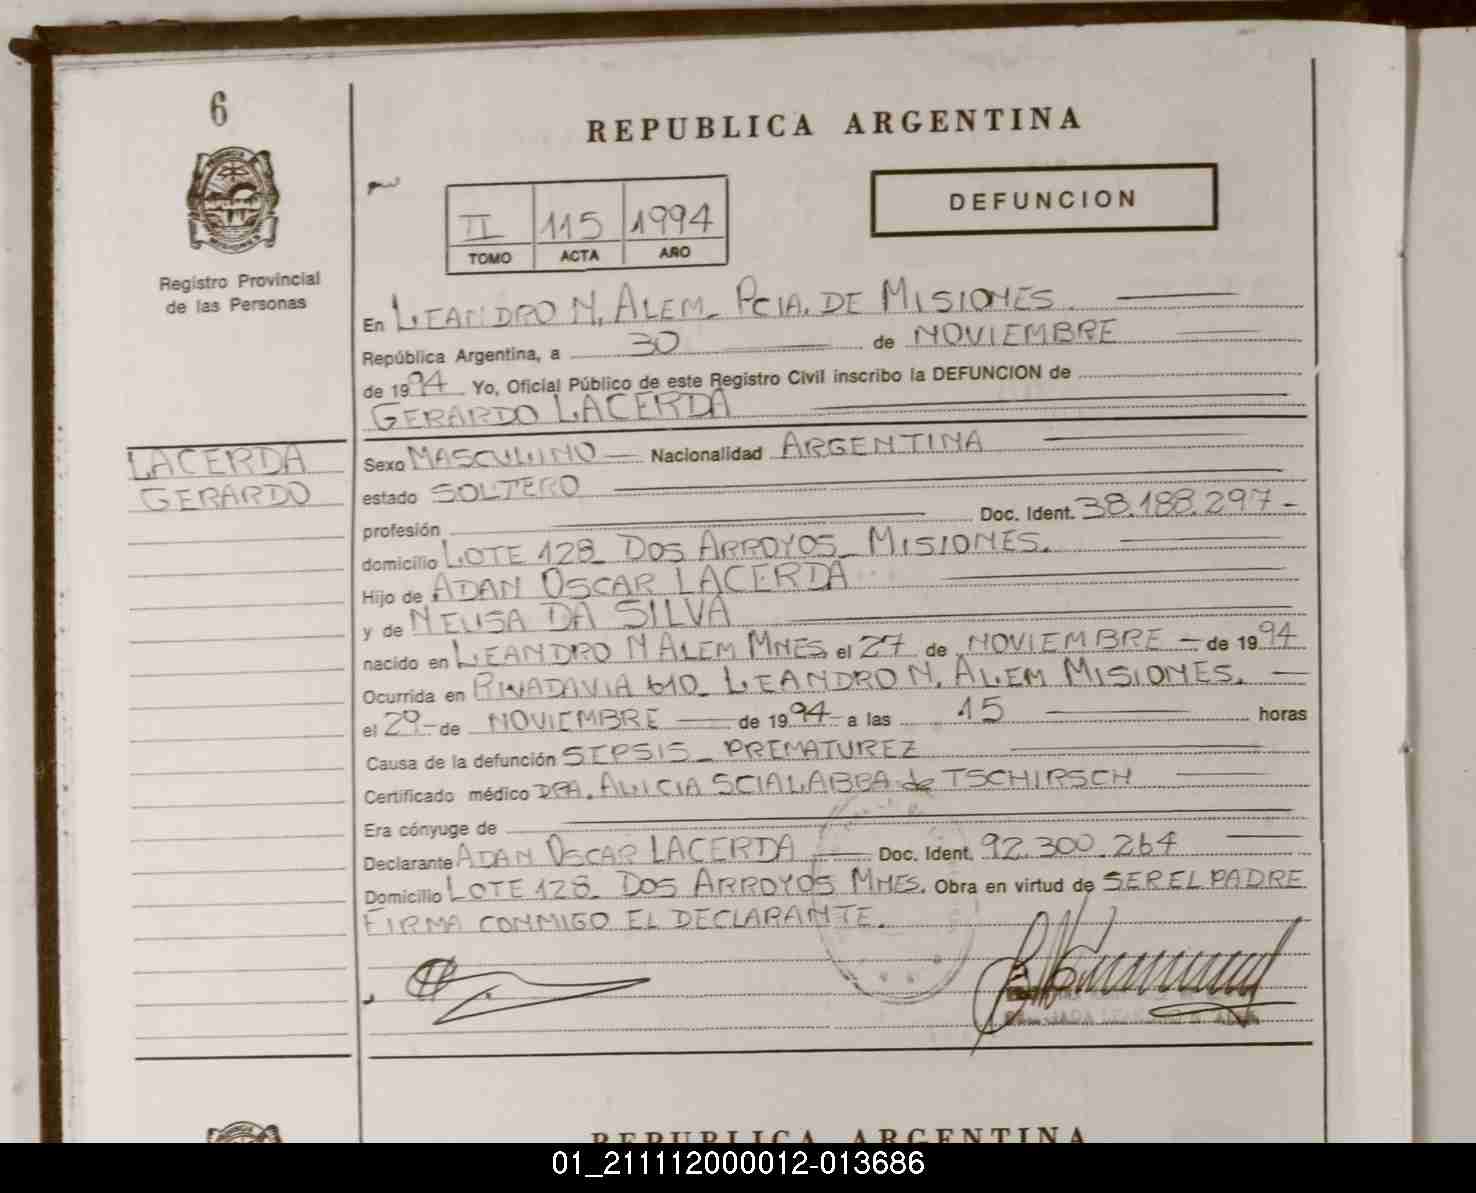 6
REPUBLICA ARGENTINA
DEFUNCION
II 115 1994
TOMO ACTA AÑO
Registro Provincial
de las Personas
En LEANDRO N. ALEM_ PCIA. DE MISIONES
República Argentina, a 30 de NOVIEMBRE
de 1994 Yo, Oficial Público de este Registro Civil inscribo la DEFUNCION de
GERARDO LACERDA
LACERDA
GERARDO
Sexo MASCULINO Nacionalidad ARGENTINA
estado SOLTERO
profesión Doc. Ident. 38.188.297-
domicilio LOTE 128_ DOS ARROYOS_ MISIONES.
Hijo de ADAN OSCAR LACERDA
y de NEUSA DA SILVA
nacido en LEANDRO N ALEM MNES. el 27 de NOVIEMBRE - de 1994
Ocurrida en RIVADAVIA 610_ LEANDRO N. ALEM MISIONES.
el 29- de NOVIEMBRE de 1994- a las 15 horas
Causa de la defunción SEPSIS_ PREMATUREZ
Certificado médico DRA. ALICIA SCIALABBA de TSCHIRSCH
Era cónyuge de
Declarante ADAN OSCAR LACERDA Doc. Ident. 92.300.264
Domicilio LOTE 128_ DOS ARROYOS MNES. Obra en virtud de SER EL PADRE
FIRMA CONMIGO EL DECLARANTE.
REPUBLICA ARGENTINA
01_211112000012-013686